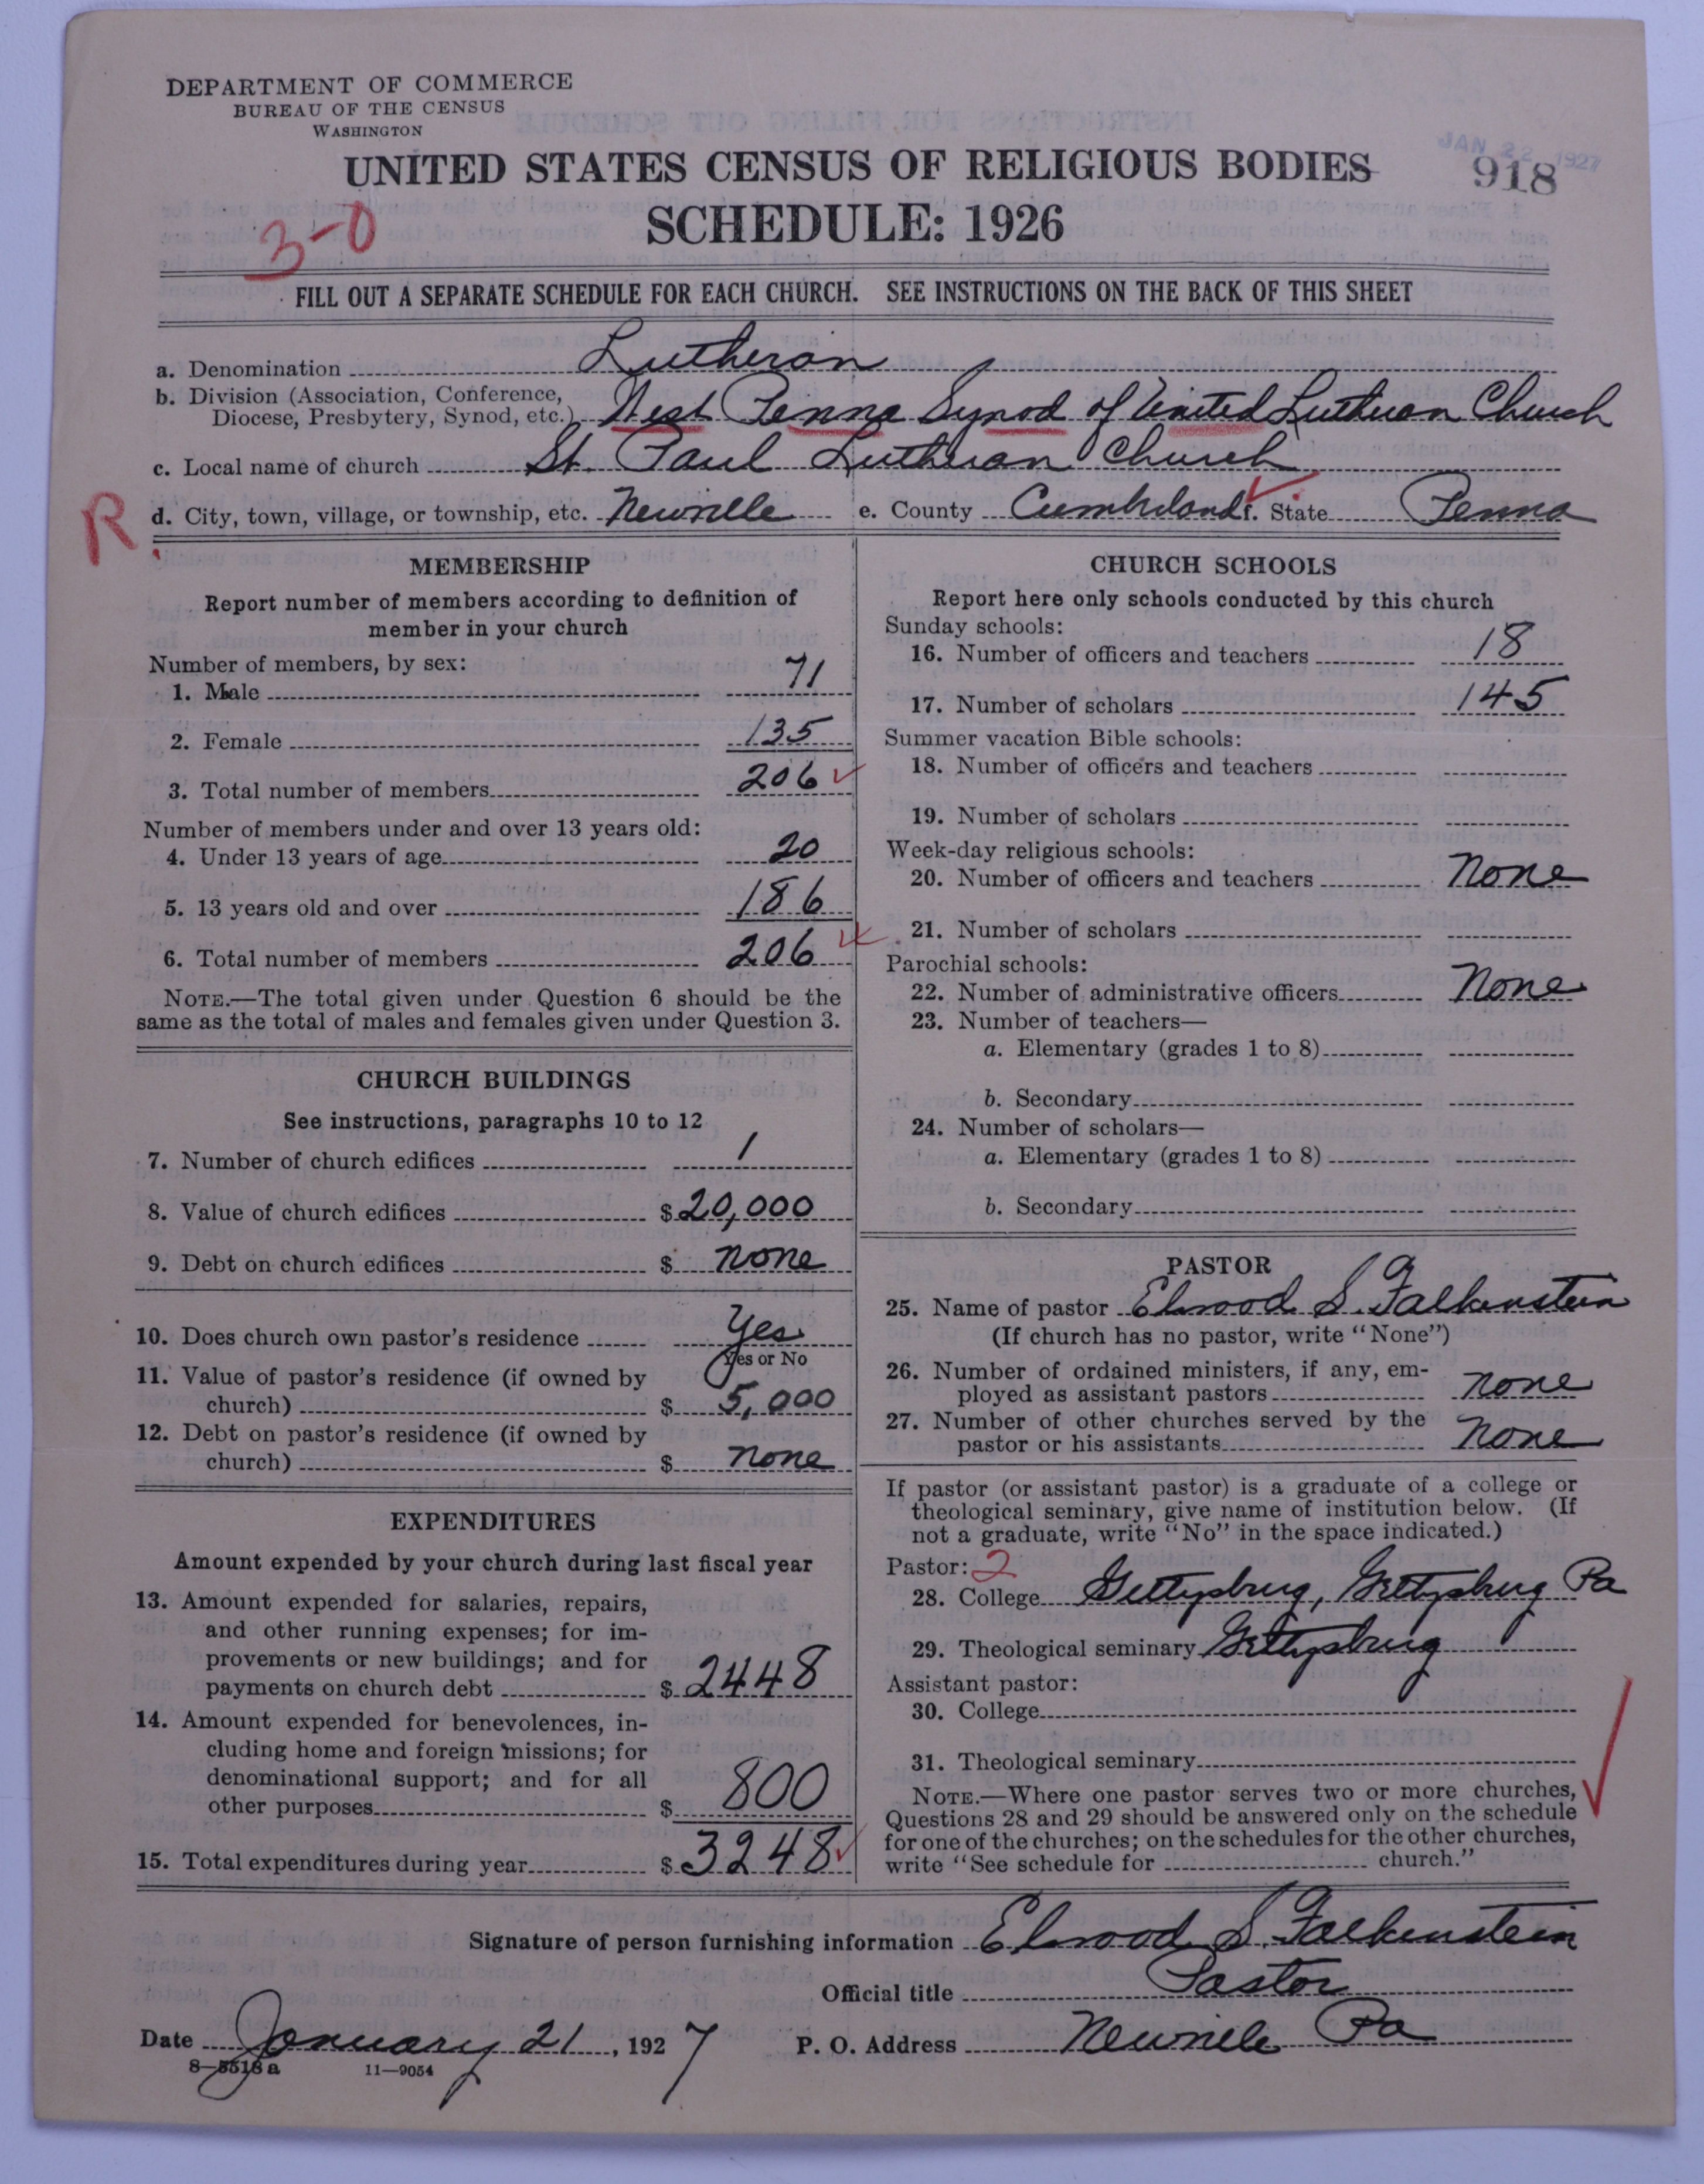 DEPARTMENT OF COMMERCE
BUREAU OF THE CENSUS
WASHINGTON
JAN 22 1927
918
UNITED STATES CENSUS OF RELIGIOUS BODIES
SCHEDULE: 1926
3-0
FILL OUT A SEPARATE SCHEDULE FOR EACH CHURCH. SEE INSTRUCTIONS ON THE BACK OF THIS SHEET
a. Denomination Lutheran
b. Division (Association, Conference,
Diocese, Presbytery, Synod, etc.) West Penna Synod of United Lutheran Church
c. Local name of church St. Paul Lutheran Church
R
d. City, town, village, or township, etc. Newville e. County Cumberland f. State Penna
MEMBERSHIP
Report number of members according to definition of
member in your church
Number of members, by sex:
1. Male 71
2. Female 135
3. Total number of members 206
Number of members under and over 13 years old:
4. Under 13 years of age 20
5. 13 years old and over 186
6. Total number of members 206
NOTE.—The total given under Question 6 should be the
same as the total of males and females given under Question 3.
CHURCH BUILDINGS
See instructions, paragraphs 10 to 12
7. Number of church edifices 1
8. Value of church edifices $ 20,000
9. Debt on church edifices $ none
10. Does church own pastor's residence Yes
Yes or No
11. Value of pastor's residence (if owned by
church) $ 5,000
12. Debt on pastor's residence (if owned by
church) $ none
EXPENDITURES
Amount expended by your church during last fiscal year
13. Amount expended for salaries, repairs,
and other running expenses; for im-
provements or new buildings; and for
payments on church debt $ 2448
14. Amount expended for benevolences, in-
cluding home and foreign missions; for
denominational support; and for all
other purposes $ 800
15. Total expenditures during year $ 3248
CHURCH SCHOOLS
Report here only schools conducted by this church
Sunday schools:
16. Number of officers and teachers 18
17. Number of scholars 145
Summer vacation Bible schools:
18. Number of officers and teachers
19. Number of scholars
Week-day religious schools:
20. Number of officers and teachers None
21. Number of scholars
Parochial schools:
22. Number of administrative officers None
23. Number of teachers—
a. Elementary (grades 1 to 8)
b. Secondary
24. Number of scholars—
a. Elementary (grades 1 to 8)
b. Secondary
PASTOR
25. Name of pastor Elwood S. Falkenstein
(If church has no pastor, write "None")
26. Number of ordained ministers, if any, em-
ployed as assistant pastors none
27. Number of other churches served by the
pastor or his assistants None
If pastor (or assistant pastor) is a graduate of a college or
theological seminary, give name of institution below. (If
not a graduate, write "No" in the space indicated.)
Pastor: 2
28. College Gettysburg, Gettysburg Pa
29. Theological seminary Gettysburg
Assistant pastor:
30. College
31. Theological seminary
NOTE.—Where one pastor serves two or more churches,
Questions 28 and 29 should be answered only on the schedule
for one of the churches; on the schedules for the other churches,
write "See schedule for church."
Signature of person furnishing information Elwood S. Falkenstein
Official title Pastor
Date January 21, 1927 P. O. Address Newville Pa
8—5518 a 11—9054